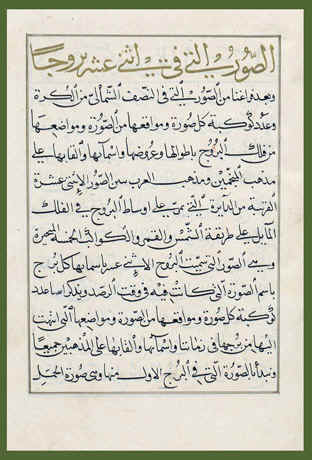 الصور التي في اثنى عشر برجا
وبعد فراغنا من الصور التي في النصف الشمالي من الكرة
وعدد كوكبة كل صورة ومواقعها من الصورة ومواضعها
من فلك البروج باطوالها وعروضها واسمائها والقابها على
مذهب المنجمين ومذهب العرب الصور الاثنى عشرة
القريبة من الدايرة التي تمر على اوساط البروج في الفلك
المايل على طريقة الشمس والقمر والكواكب الخمسة المتحيرة
وهي الصور التي سميت البروج الاثنى عشر باسمائها كل برج
باسم الصورة التي كانت فيه في وقت الرصد ونذكر عدد
كوكبة كل صورة ومواقعها من الصورة ومواضعها التي انتهت
اليها من بروجها في زماننا واسمائها والقابها على المذهبين جميعا
ونبدا بالصورة التي في البرج الاول منها وهي صورة الحمل